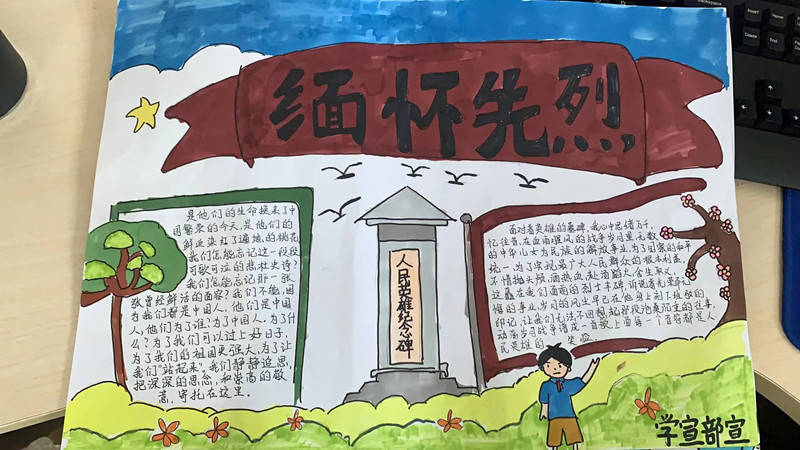 缅怀先烈
是他们的生命换来了中
国繁荣的今天,是他们的
鲜血染红了遍地的桃花
我们怎能忘记这一段段
可歌可泣的悲壮史诗?
我们怎能忘记那一张
张曾经鲜活的面容?我们不能,因
为我们都是中国人,他们是中国
人,他们为了谁?为了中国人,为了什
么?为了我们可以过上好日子,
为了我们的祖国更强大,为了让
我们"站起来",我们静静追思,
把深深的思念,和崇高的敬
意,寄托在这里。
人民英雄纪念碑
面对着英雄的墓碑,我心中思绪万千,
忆往昔,在血雨腥风的战争岁月里,无数
的中华儿女为民族的解放事业,为了国家的和平
统一,为了实现最广大人民群众的根本利益,
不惜抛头颅,洒热血,赴汤蹈火,舍生取义,
这矗在我们面前的烈士丰碑,诉说着光荣而
悔的事业,岁月的风尘早已在他身上刻下斑驳的
印记,让我们无法不回想起
动荡岁月战争谱成一首歌上面每一个音容都是人
民英雄的
学宣部宣